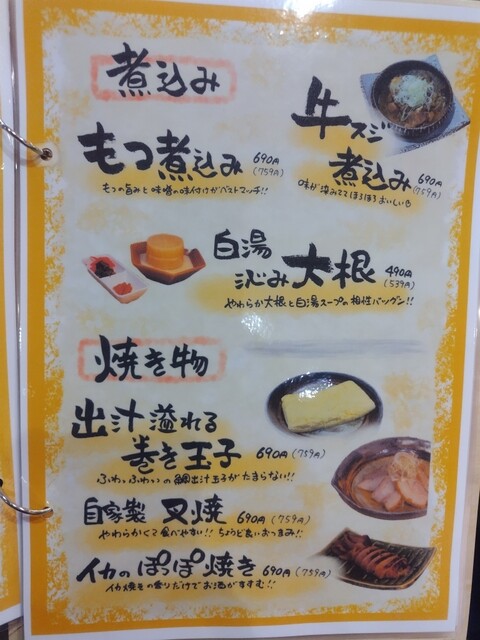 煮込み
もつ煮込み 690円
(759円)
もつの旨みと味噌の味付けがベストマッチ!!
牛スジ
煮込み 690円
(759円)
味が染みててほろほろおいしい
白湯
沁み大根 490円
(539円)
やわらか大根と白湯スープの相性バツグン!!
焼き物
出汁溢れる
巻き玉子 690円(759円)
ふわっふわっの鯛出汁玉子がたまらない!!
自家製 叉焼 690円(759円)
やわらかくて食べやすい!! ちょうど良いおつまみ!!
イカのぽっぽ焼き 690円(759円)
イカ焼きの香りだけでお酒がすすむ!!